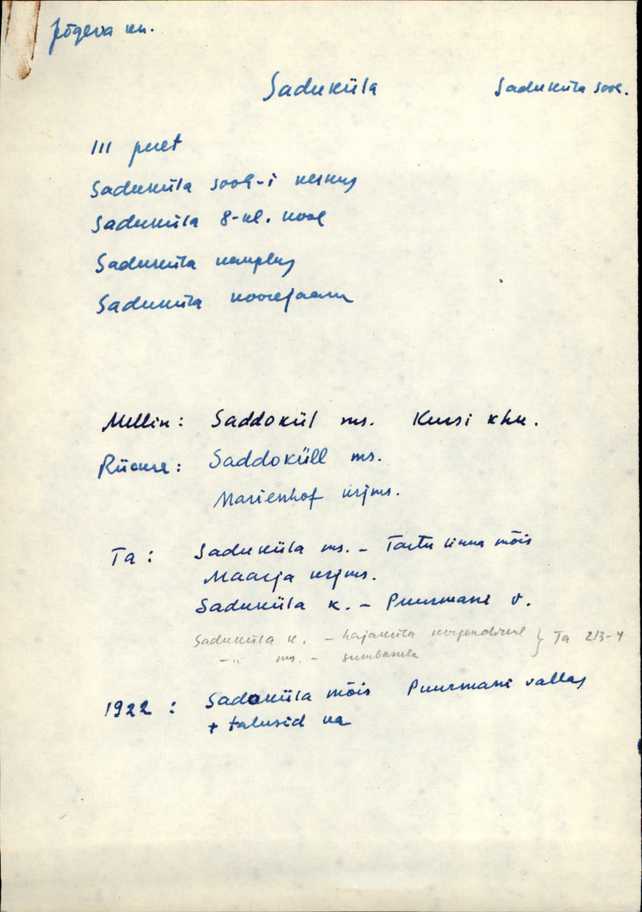 Jõgeva kn.
Saduküla
Saduküla sovh.
111 peret
Saduküla sovh-i keskus
Saduküla 8-kl. kool
Saduküla kauplus
Saduküla koorejaam
Mellin: Saddokül ms. Kursi khk.
Rücker: Saddoküll ms.
Marienhof krjms.
Ta: Saduküla ms. – Tartu linna mõis
Maarja krjms.
Saduküla k. – Puurmani v.
Saduküla k. – hajaküla } Ta 213-4
–"– ms. – sumbküla
1922: Sadoküla mõis Puurmani vallas
+ talusid ka